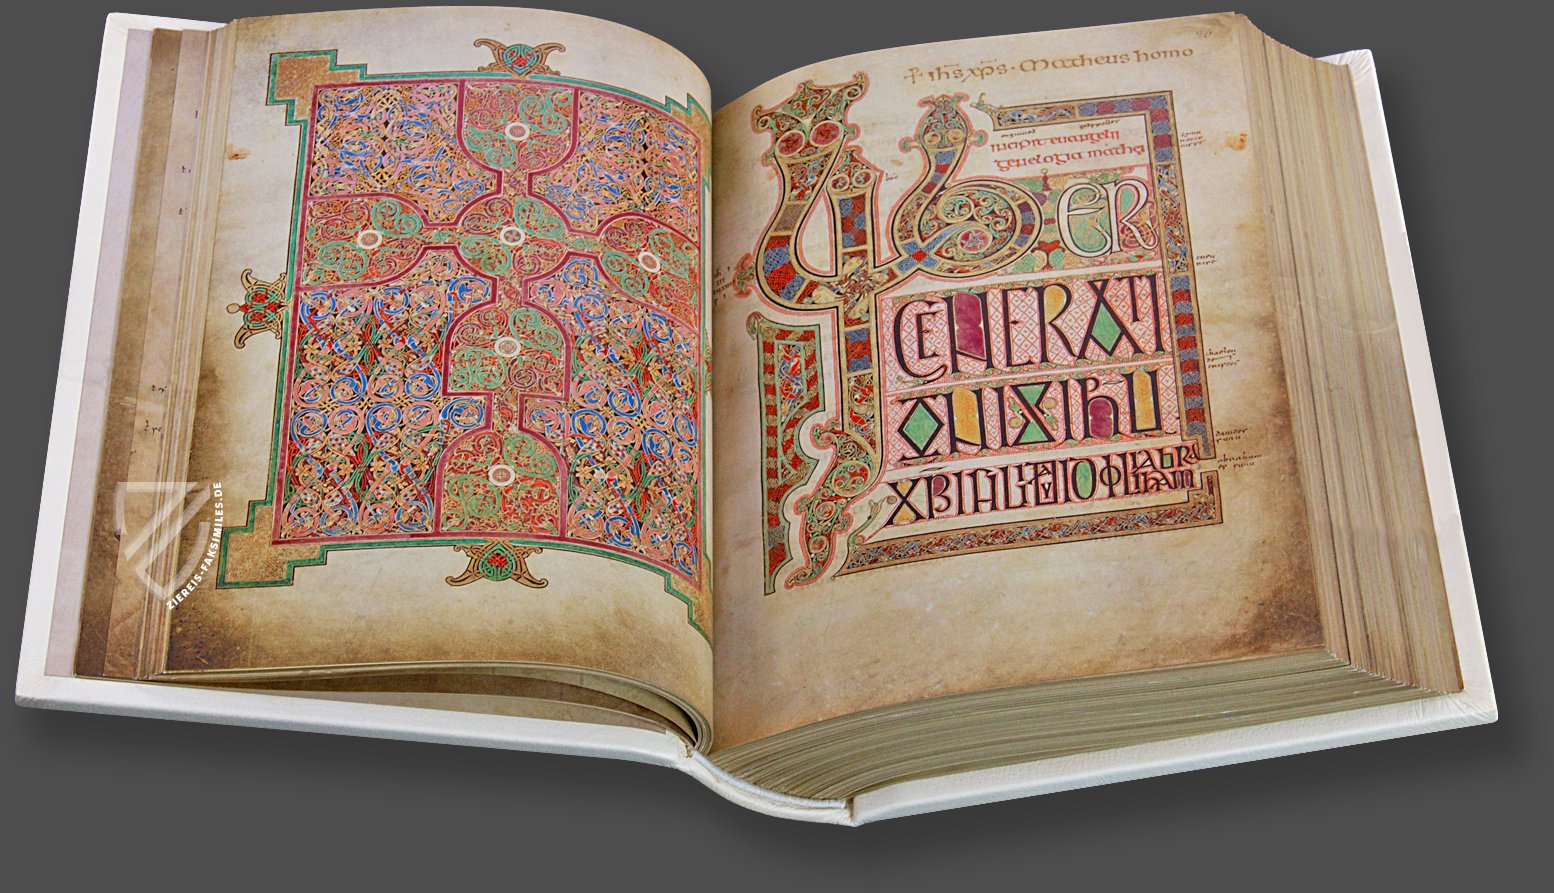 ZIEREIS-FAKSIMILES.DE
+ ihs xps · Matheus homo
incipit euangelii
genelogia mathei
LIBER
GENERATI
ONIS IHU
XPI FILII DAVID FILII ABRAHAM